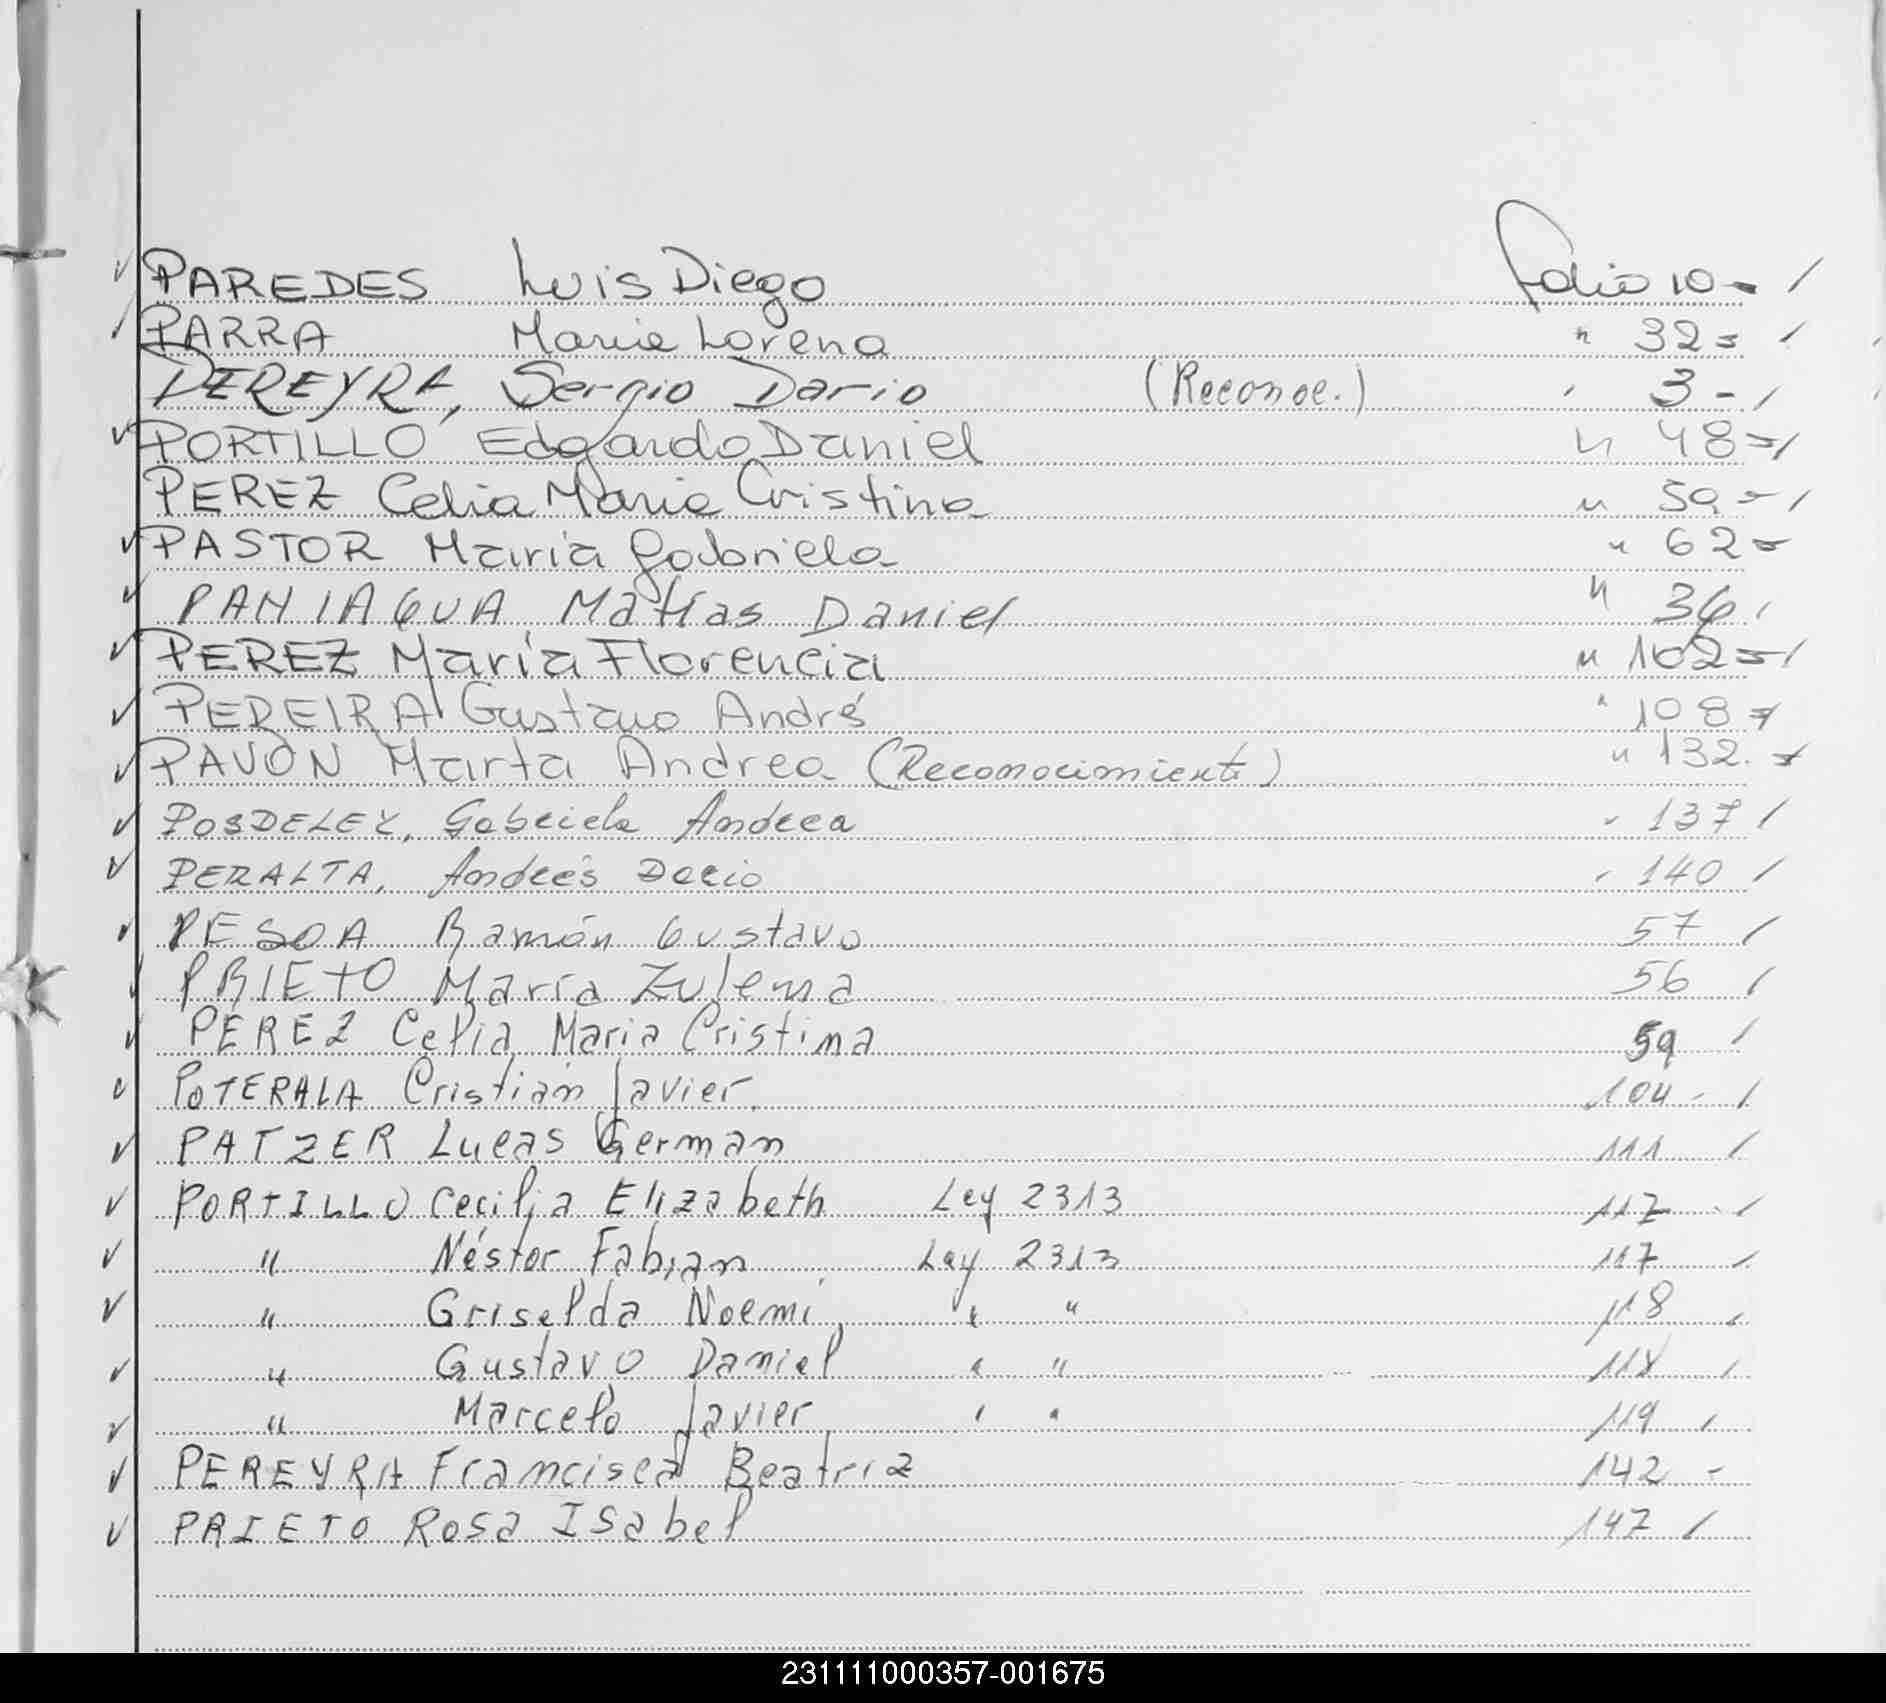 PAREDES Luis Diego folio 10 - /
PARRA Maria Lorena " 32 = /
PEREYRA, Sergio Dario (Reconoc.) " 3 - /
PORTILLO Edgardo Daniel " 48 = /
PEREZ Celia Maria Cristina " 59 = /
PASTOR María Gabriela " 62 =
PANIAGUA Matías Daniel " 36 /
PEREZ María Florencia " 102 = /
PEREIRA Gustavo André " 108 =
PAVON Marta Andrea (Reconocimiento) " 132. =
POSDELEY, Gabriela Andrea " 137 /
PERALTA, Andrés Dario " 140 /
PESOA Ramón Gustavo 57 /
PRIETO María Zulema 56 /
PEREZ Celia Maria Cristina 59 /
POTERALA Cristian Javier. 104 - /
PATZER Lucas German 111 /
PORTILLO Cecilia Elizabeth Ley 2313 117 - /
" Néstor Fabian Ley 2313 117 /
" Griselda Noemi " " 118 /
" Gustavo Daniel " " 118 /
" Marcelo Javier " " 119 /
PEREYRA Francisca Beatriz 142 -
PRIETO Rosa Isabel 147 /
231111000357-001675